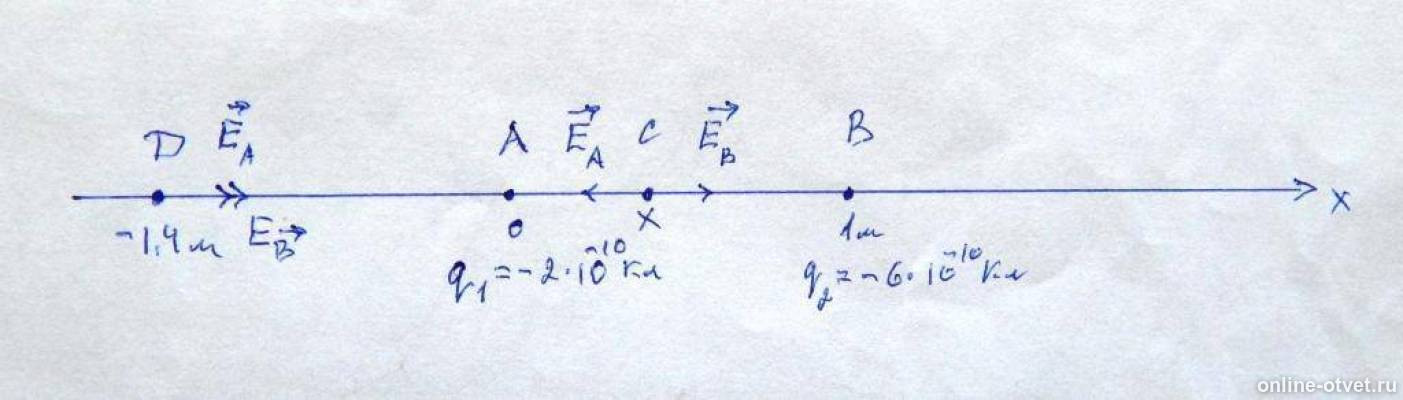 D E⃗_A A E⃗_A C E⃗_B B
-1,4 м E_B⃗ 0 x 1м x
q₁ = -2·10⁻¹⁰ Кл q₂ = -6·10⁻¹⁰ Кл
online-otvet.ru